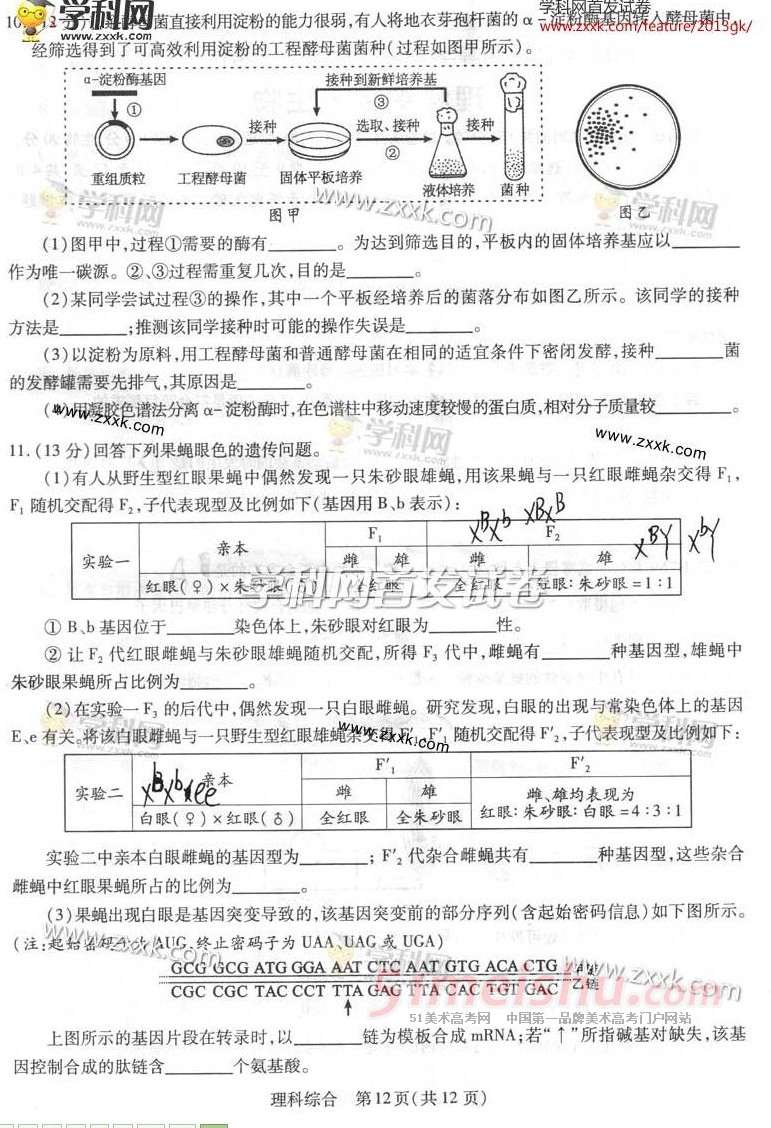 学科网首发试卷
www.zxxk.com/feature/2013gk/
直接利用淀粉的能力很弱,有人将地衣芽孢杆菌的α-淀粉酶基因转入酵母菌中,
经筛选得到了可高效利用淀粉的工程酵母菌菌种(过程如图甲所示)。
α-淀粉酶基因
接种到新鲜培养基
① ③
接种 选取、接种 接种
②
重组质粒 工程酵母菌 固体平板培养 液体培养 菌种
图甲 图乙
(1)图甲中,过程①需要的酶有________。为达到筛选目的,平板内的固体培养基应以________
作为唯一碳源。②、③过程需重复几次,目的是________。
(2)某同学尝试过程③的操作,其中一个平板经培养后的菌落分布如图乙所示。该同学的接种
方法是________;推测该同学接种时可能的操作失误是________。
(3)以淀粉为原料,用工程酵母菌和普通酵母菌在相同的适宜条件下密闭发酵,接种________菌
的发酵罐需要先排气,其原因是________。
用凝胶色谱法分离α-淀粉酶时,在色谱柱中移动速度较慢的蛋白质,相对分子质量较________。
11.(13分)回答下列果蝇眼色的遗传问题。
(1)有人从野生型红眼果蝇中偶然发现一只朱砂眼雄蝇,用该果蝇与一只红眼雌蝇杂交得F₁,
F₁随机交配得F₂,子代表现型及比例如下(基因用B、b表示):
XᴮXᵇ XᴮXᴮ
实验一 亲本 F₁ F₂
雌 雄 雌 雄 XᴮY XᵇY
红眼(♀)×朱砂眼 全红眼 全红眼 红眼:朱砂眼=1:1
①B、b基因位于________染色体上,朱砂眼对红眼为________性。
②让F₂代红眼雌蝇与朱砂眼雄蝇随机交配,所得F₃代中,雌蝇有________种基因型,雄蝇中
朱砂眼果蝇所占比例为________。
(2)在实验一F₃的后代中,偶然发现一只白眼雌蝇。研究发现,白眼的出现与常染色体上的基因
E、e有关。将该白眼雌蝇与一只野生型红眼雄蝇杂交得F′₁,F′₁随机交配得F′₂,子代表现型及比例如下:
实验二 亲本 F′₁ F′₂
XᴮXᵇee
雌 雄 雌、雄均表现为
白眼(♀)×红眼(♂) 全红眼 全朱砂眼 红眼:朱砂眼:白眼=4:3:1
实验二中亲本白眼雌蝇的基因型为________;F′₂代杂合雌蝇共有________种基因型,这些杂合
雌蝇中红眼果蝇所占的比例为________。
(3)果蝇出现白眼是基因突变导致的,该基因突变前的部分序列(含起始密码信息)如下图所示。
(注:起始密码子为AUG,终止密码子为UAA、UAG或UGA)
GCG GCG ATG GGA AAT CTC AAT GTG ACA CTG 甲链
CGC CGC TAC CCT TTA GAG TTA CAC TGT GAC 乙链
↑
51meishu.com
51美术高考网 中国第一品牌美术高考门户网站
上图所示的基因片段在转录时,以________链为模板合成mRNA;若“↑”所指碱基对缺失,该基
因控制合成的肽链含________个氨基酸。
理科综合 第12页(共12页)